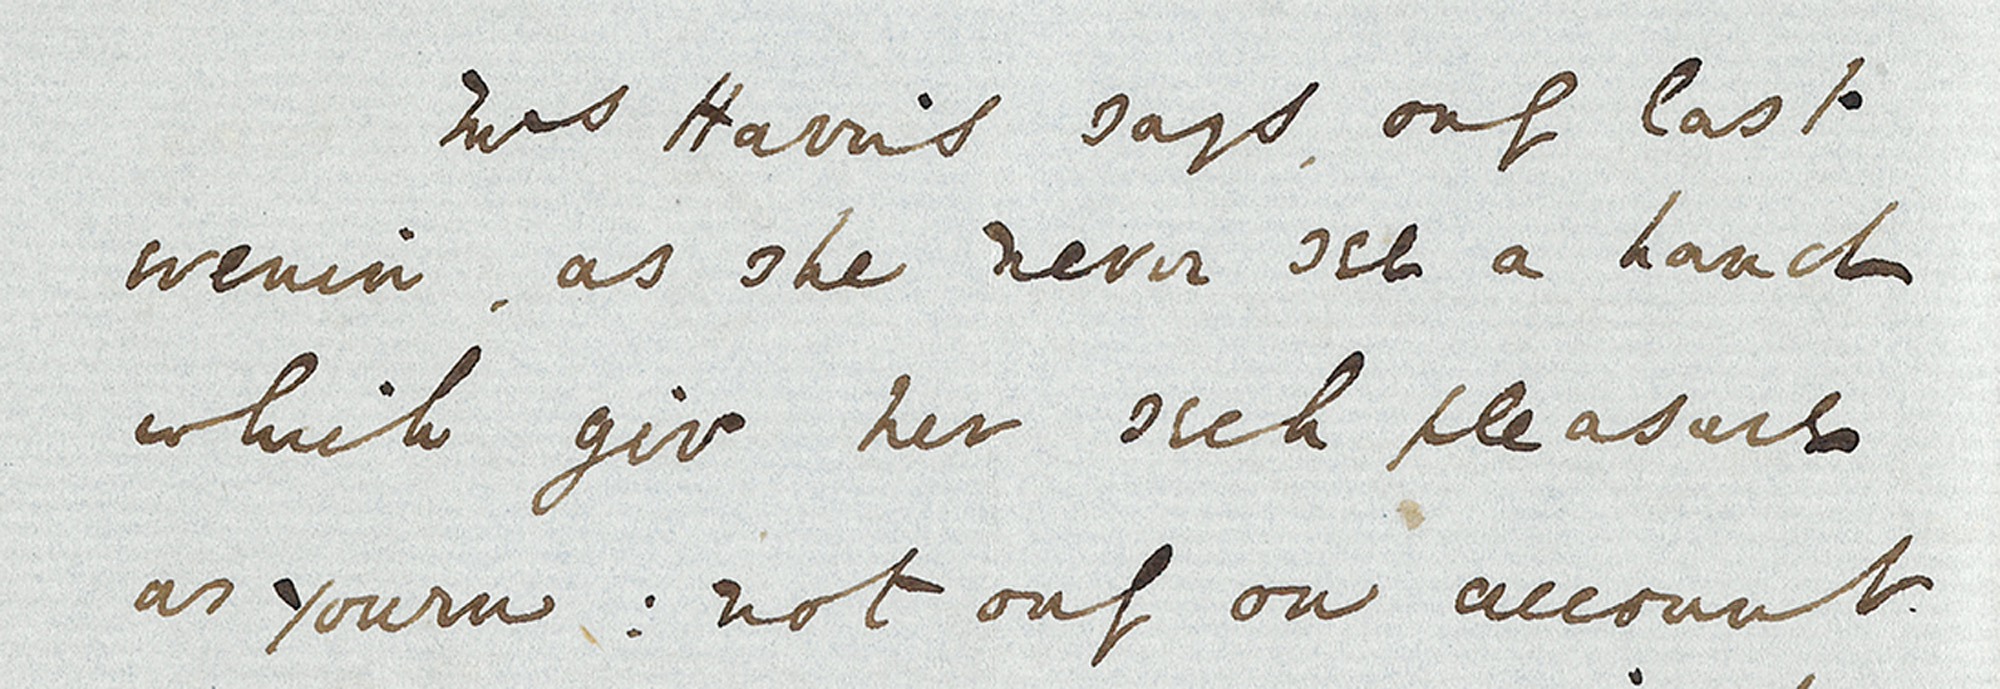 Mrs Harris says, only last
evenin, as she never see a hand
which giv her sech pleasure
as yourn : not only on account